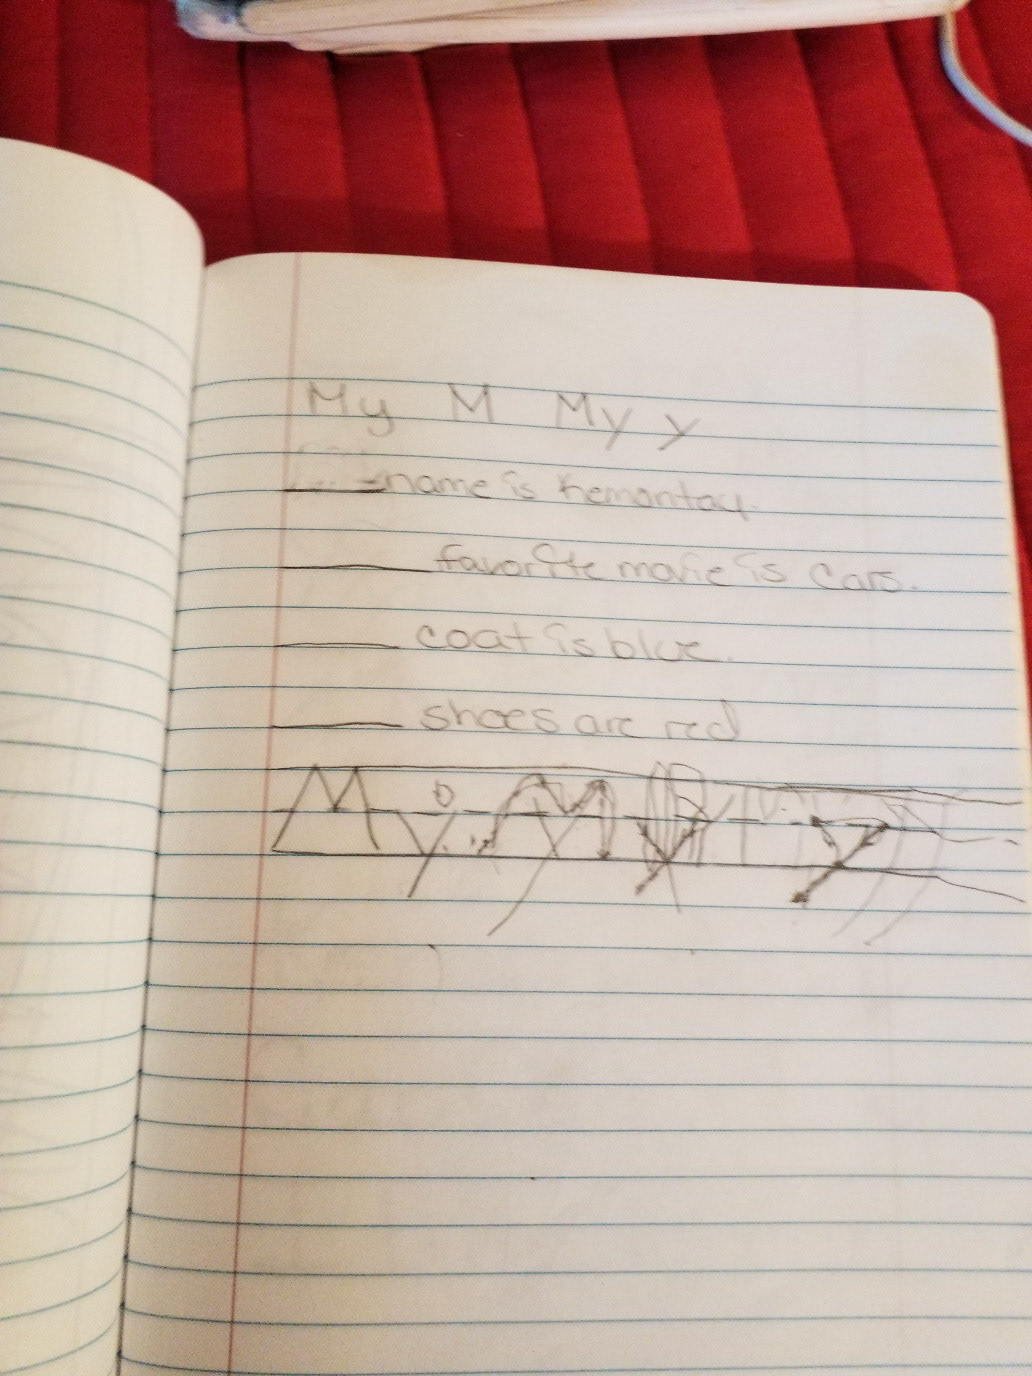 My M My y
name is Kemontay.
favorite movie is Cars.
coat is blue.
shoes are red
My